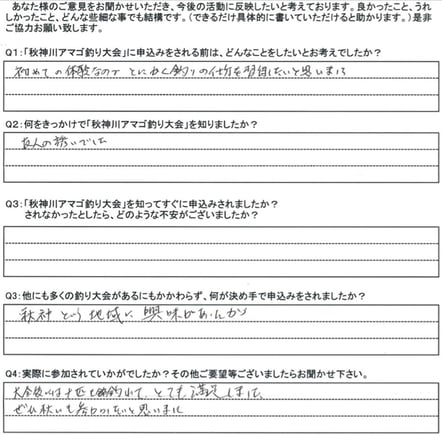 あなた様のご意見をお聞かせいただき、今後の活動に反映したいと考えております。良かったこと、うれ
しかったこと、どんな些細な事でも結構です。（できるだけ具体的に書いていただけると助かります。）是非
ご協力お願い致します。
Q1：「秋神川アマゴ釣り大会」に申込みをされる前は、どんなことをしたいとお考えでしたか？
初めての体験なので とにかく釣りの仕方を習得したいと思いました
Q2：何をきっかけで「秋神川アマゴ釣り大会」を知りましたか？
友人の誘いでした
Q3：「秋神川アマゴ釣り大会」を知ってすぐに申込みされましたか？
されなかったとしたら、どのような不安がございましたか？
Q3：他にも多くの釣り大会があるにもかかわらず、何が決め手で申込みをされましたか？
秋神という地域に興味があったから
Q4：実際に参加されていかがでしたか？その他ご要望等ございましたらお聞かせ下さい。
釣れて、とても満足しました
ぜひ秋にも参加したいと思いました